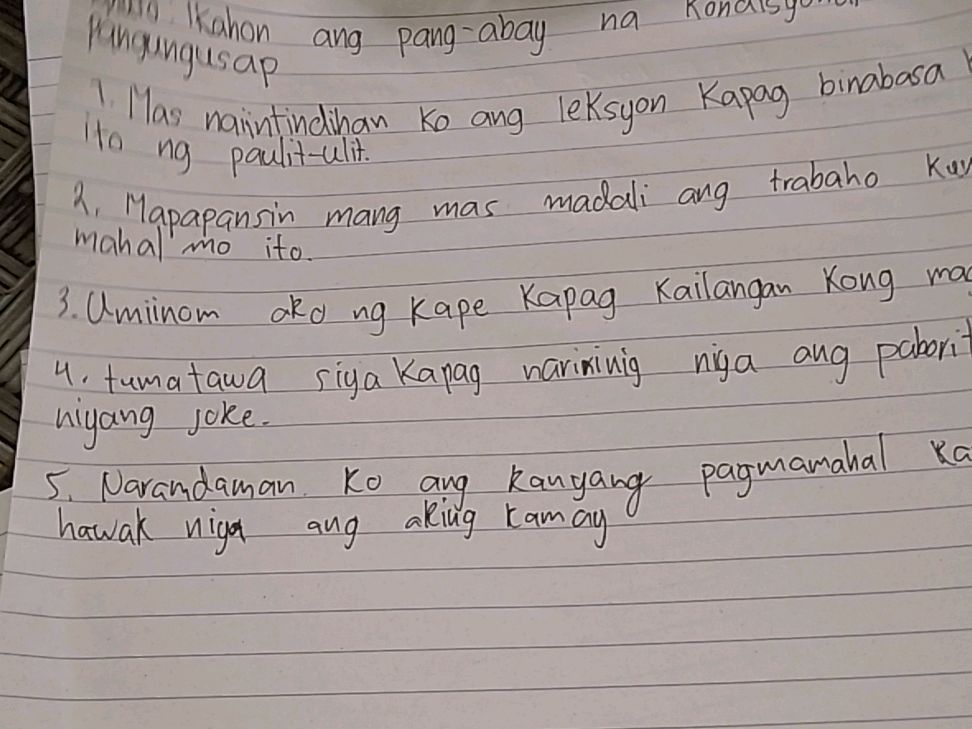 Ikahon ang pang-abay na
pangungusap
1. Mas naiintindihan ko ang leksyon kapag binabasa
ito ng paulit-ulit.
2. Mapapansin mang mas madali ang trabaho
mahal mo ito.
3. Umiinom ako ng kape kapag kailangan kong
4. tumatawa siya kapag naririnig niya ang
niyang joke.
5. Narandaman ko ang kanyang pagmamahal
hawak niya ang aking kamay